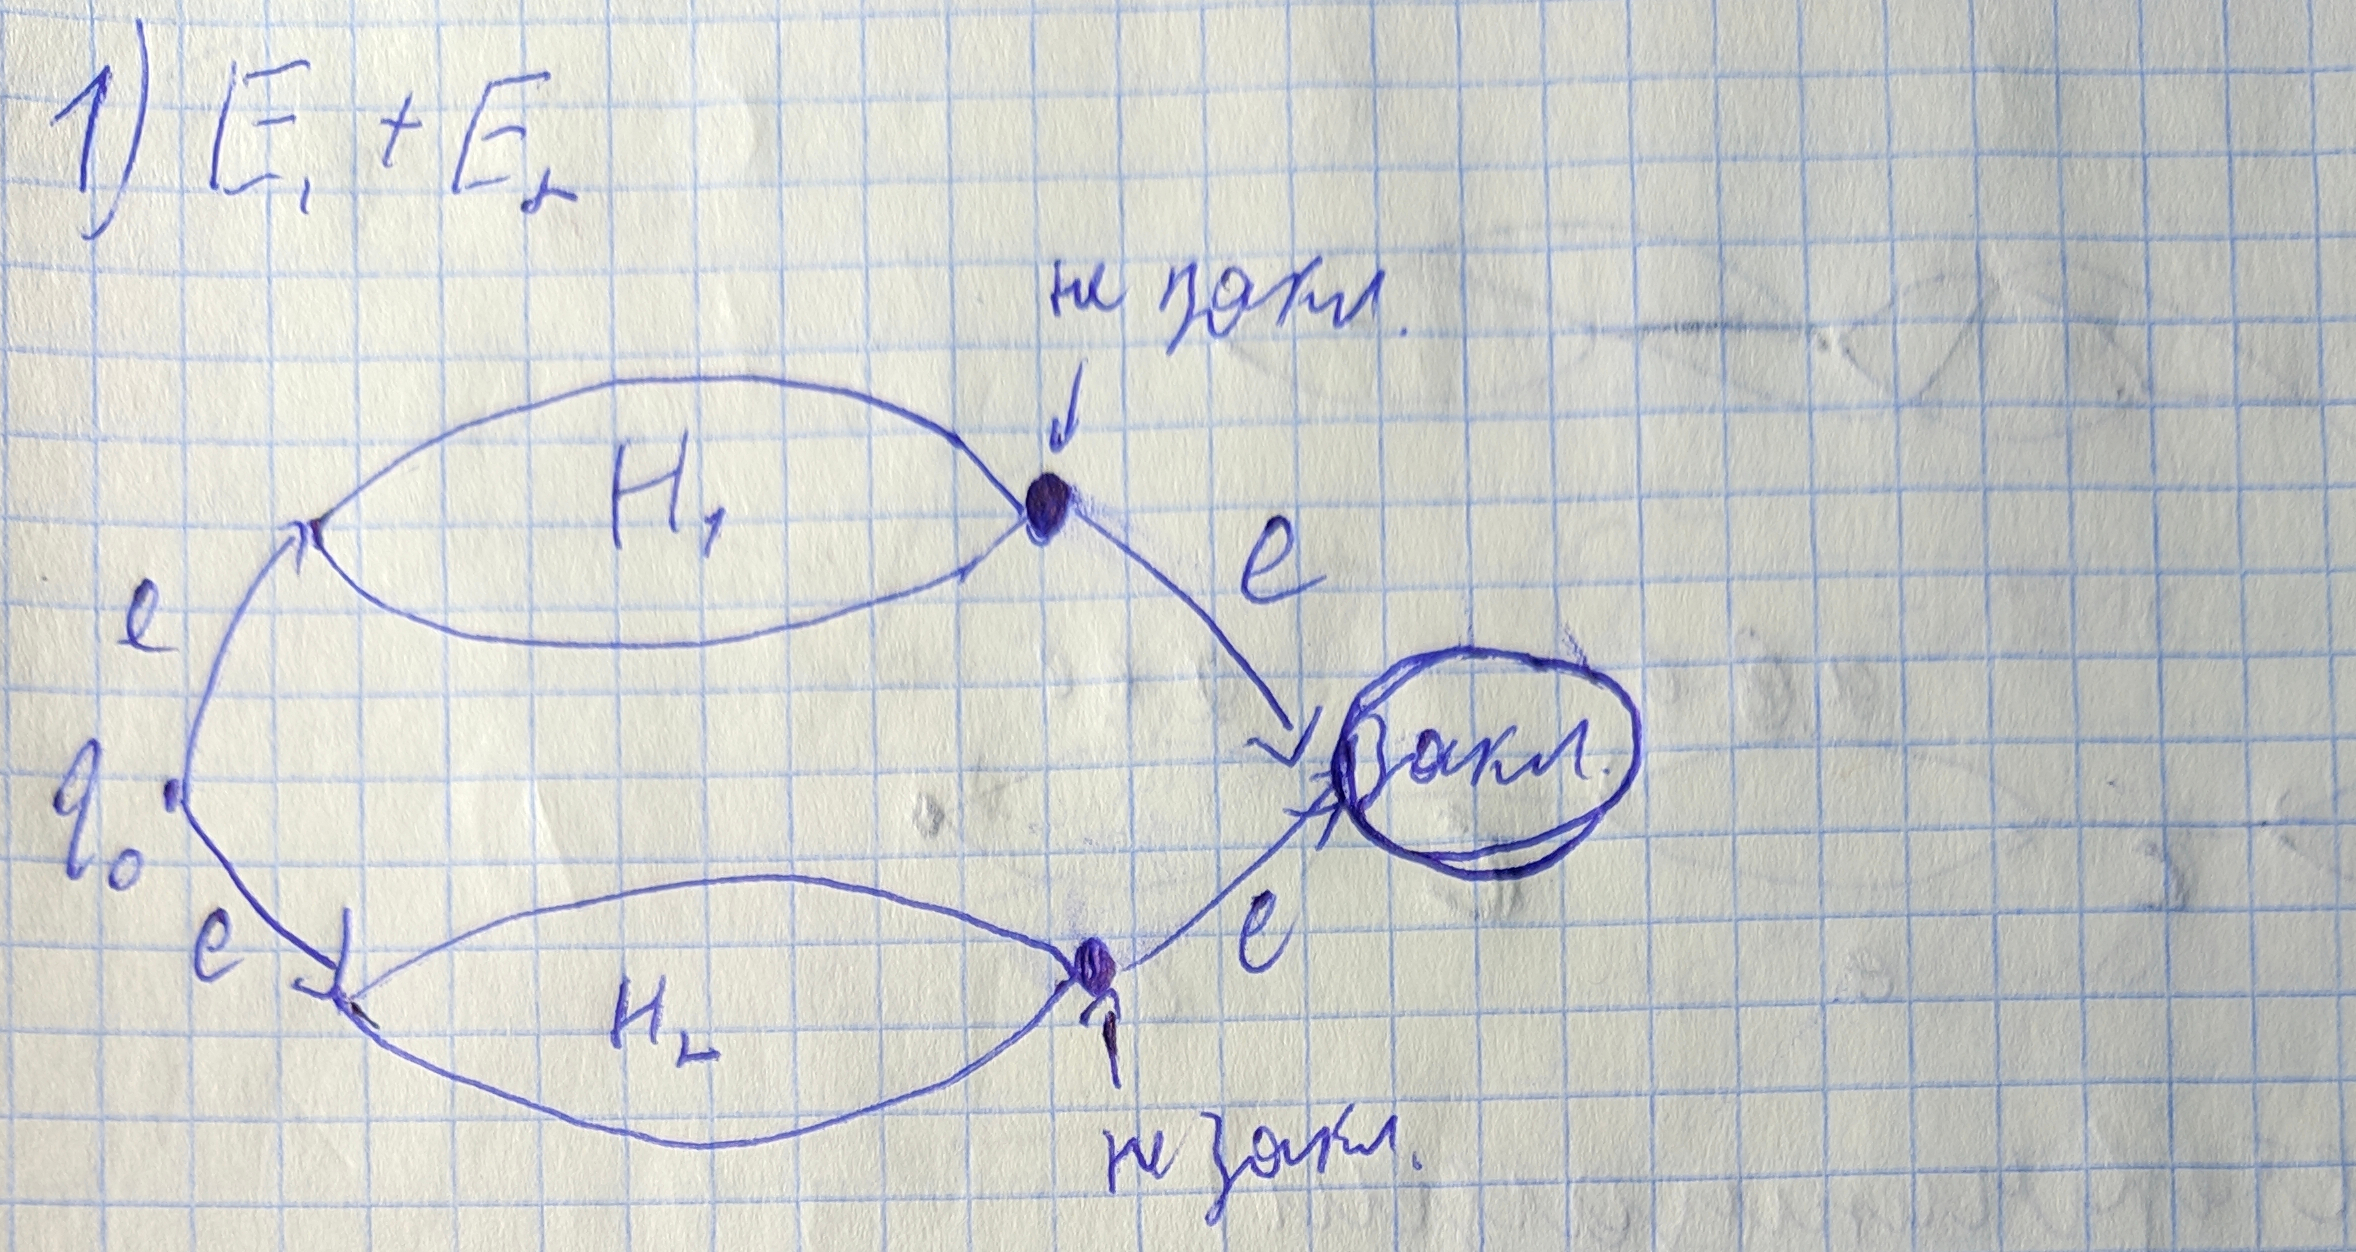 1) E₁ + E₂
не закл.
H₁
e
e
закл.
q₀
e
e
H₂
не закл.